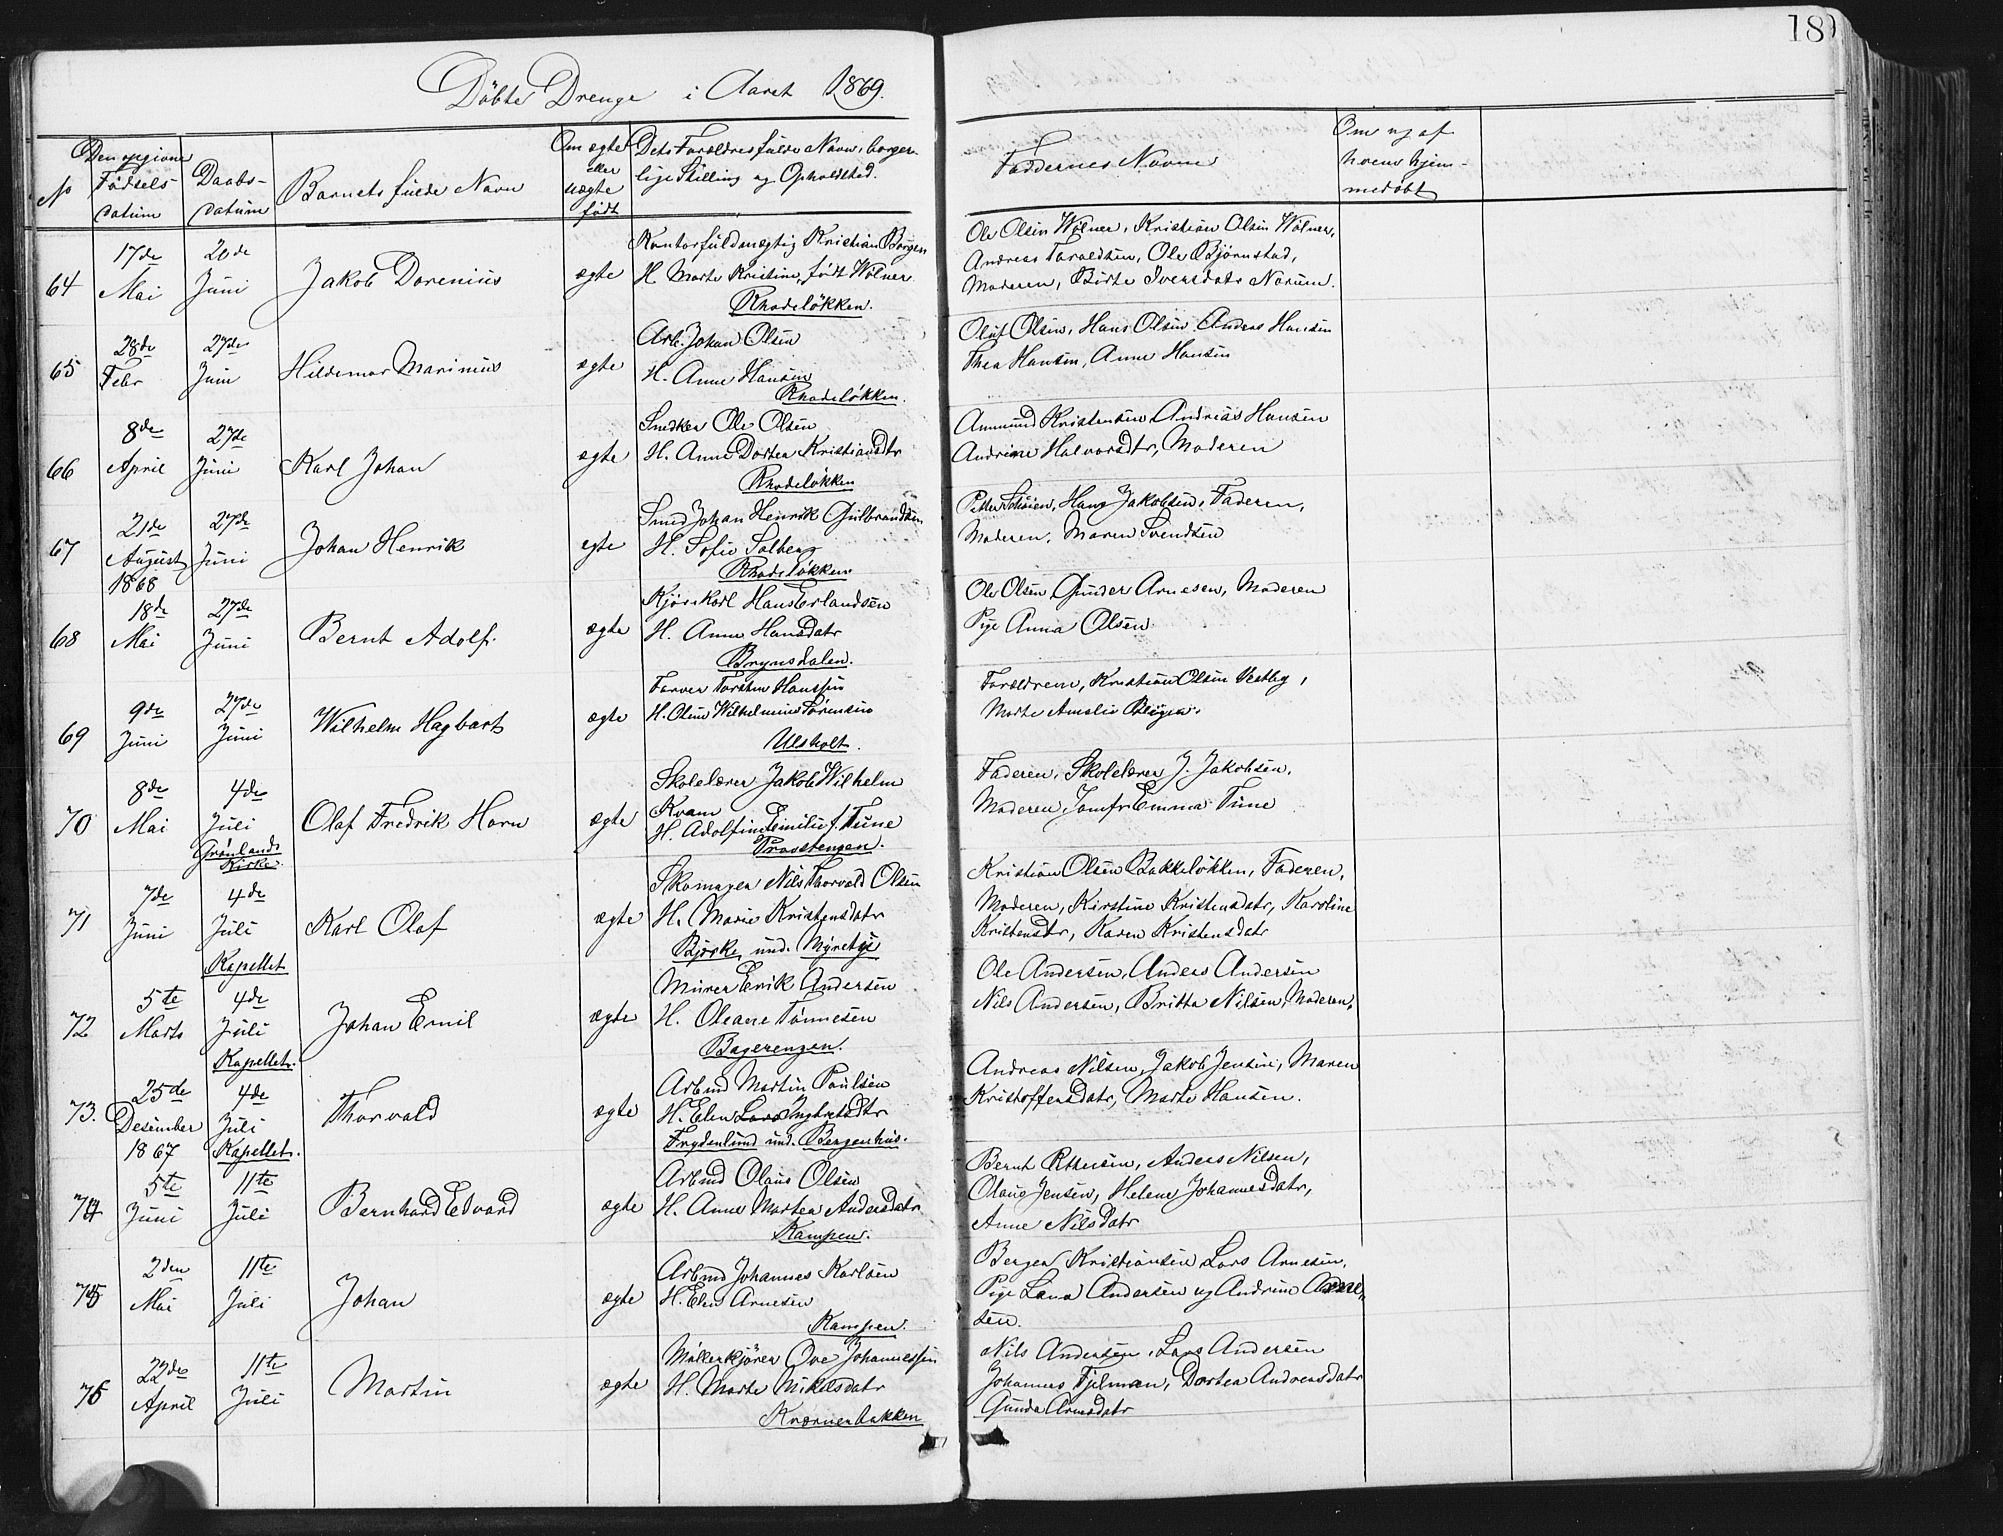 18
Döbte Drenge i Aaret 1869.
No
Den opgivne Fødsels-datum
Daabs-datum
Barnets fulde Navn
Om ægte eller uægte født
Dets Forældres fulde Navn, borgerlige Stilling og Opholdsted.
Faddernes Navne
Om og af hvem hjemmedøbt
64 17de Mai 20de Juni Jakob Dorenius ægte
Kontorfuldmægtig Kristian Borgen
H. Marte Kristine, født Wølner
Rhodeløkken.
Ole Olsen Wølner, Kristian Olsen Wølner,
Andreas Taraldsen, Ole Bjørnstad,
Moderen, Birte Iversdatr Norum.
65 28de Febr 27de Juni Hildemar Marinius ægte
Arb. Johan Olsen
H. Anne Hansen
Rhodeløkken.
Oluf Olsen, Hans Olsen, Anders Hansen
Thea Hansen, Anne Hansen
66 8de April 27de Juni Karl Johan ægte
Snedker Ole Olsen
H. Anne Dortea Kristiansdtr
Rhodeløkken
Ammund Kristensen Andreas Hansen
Andrine Halvorsdtr, Moderen
67 21de August 1868 27de Juni Johan Henrik egte
Smed Johan Henrik Gulbrandsen
H. Sofie Solberg
Rhodeløkken
Petter Schøien, Hans Jakobsen, Faderen,
Moderen, Maren Svendsen
68 18de Mai 27de Juni Bernt Adolf. ægte
Kjørekarl Hans Erlandsen
H. Anne Hansdatr
Brynsdalen.
Ole Olsen, Gunder Arnesen, Moderen
Pige Anna Olsen
69 9de Juni 27de Juni Wilhelm Hagbart ægte
Farver Torsten Hanssen
H. Oline Wilhelmine Sørensen
Ulsholt.
Forældrene, Kristian Olsen Vestby,
Marte Amalie
70 8de Mai 4de Juli Grønlands Kirke. Olaf Fredrik Horn ægte
Skolelærer Jakob Wilhelm
Kvam
H. Adolfine Emilie f. Tune
Provstengen.
Faderen, Skolelærer J. Jakobsen,
Moderen Jomfr Emma Tune
71 7de Juni 4de Juli Kapellet Karl Olaf ægte
Skomager Nils Thorvald Olsen
H. Marie Kristensdatr
Bjerke, und. Myretje
Kristian Olsen Bakkeløkken, Faderen,
Moderen, Kirstine Kristensdatr, Karoline
Kristensdtr, Karen Kristensdatr
72 5te Marts 4de Juli Kapellet. Johan Emil ægte
Murer Erik Andersen
H. Oleane Tønnesen
Bagerengen.
Ole Andersen, Anders Andersen
Nils Andersen, Britta Nilsen, Moderen,
73. 25de Desember 1867 4de Juli Kapellet. Thorvald ægte
Arbmd Martin Paulsen
H. Elen Ingbretsdtr
Frydenlund und. Bergenhus.
Andreas Nilsen, Jakob Jensen, Maren
Kristoffersdatr, Marte Hansen.
74 5te Juni 11te Juli Bernhard Edvard ægte
Arbmd Olaus Olsen
H. Anne Martea Andersdatr.
Kampen.
Bernt Pettersen, Anders Nilsen,
Olaus Jensen, Helene Johannesdatr,
Anne Nilsdatr
75 2den Mai 11te Juli Johan ægte
Arbmd Johannes Karlsen
H. Elen Arnesen
Kampen.
Berger Kristiansen Lars Arnesen,
Pige Lana Andersen og Andrine Arne-
sen.
76 22de April 11te Juli Martin ægte
Møllerkjører Ove Johannessen
H. Marte Mikelsdatr
Kværnerbakken
Nils Andersen, Lars Andersen
Johannes Fjelman, Dortea Andreasdatr
Gunda Arnesdatr